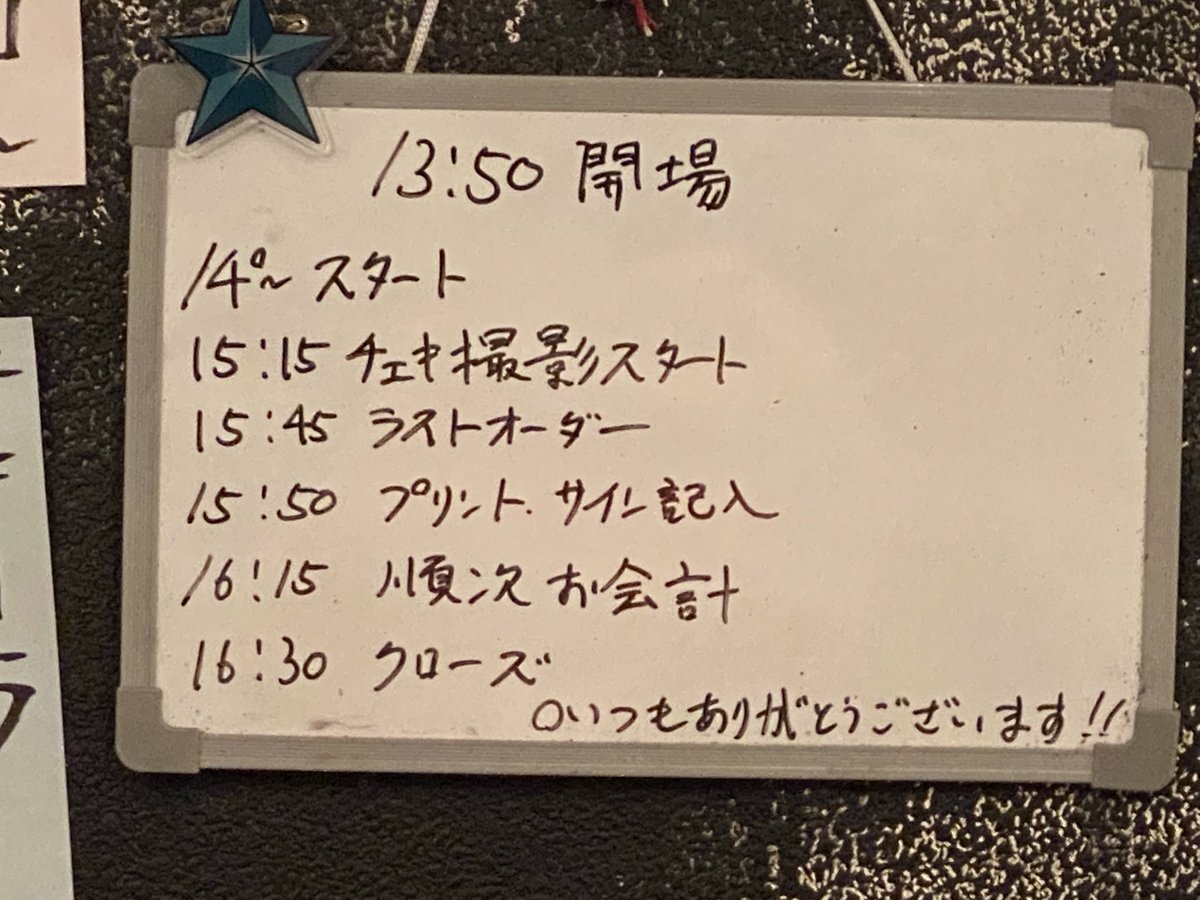 13:50 開場
14°~ スタート
15:15 チェキ撮影スタート
15:45 ラストオーダー
15:50 プリント.サイン記入
16:15 順次 お会計
16:30 クローズ
○いつもありがとうございます!!